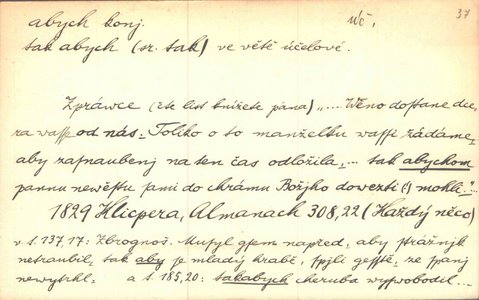 abych konj. úč. 37
tak abych (sr. tak) ve větě účelové.
Zpráwce (čte list knížete pána) „.... Wěno dostane dce-
ra wasse od nás. Toliko o to manželku wassi žádáme,
aby zasnaubenj na ten čas odložila,... tak abychom
pannu newěstu sami do chrámu Božjho dowezti (!) mohli."...
1829 Klicpera, Almanach 308,22 (Každý něco)
v t. 137,17: Zbrognoš. Musyl gsem napřed, aby strážnjk
netraubil, tak aby se mladý hrabě, spjli gesstě, ze spanj
newytrhl. a t. 185,20: takabych cheruba wyswobodil...